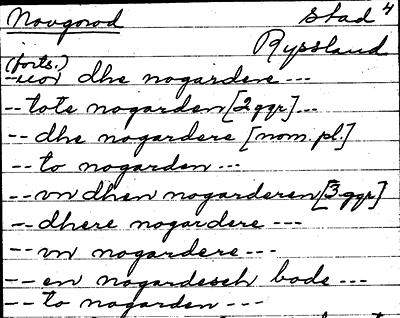 Novgorod Stad 4
Ryssland
(forts.)
-- vor dhe nogardere ---
-- tote nogarden [2 ggr] ---
-- dhe nogardere [nom. pl.]
-- to nogarden ---
-- vn dhen nogarderen [3 ggr]
-- dhere nogardere ---
-- vn nogardere ---
-- en nogardesch bode ---
-- to nogarden ---